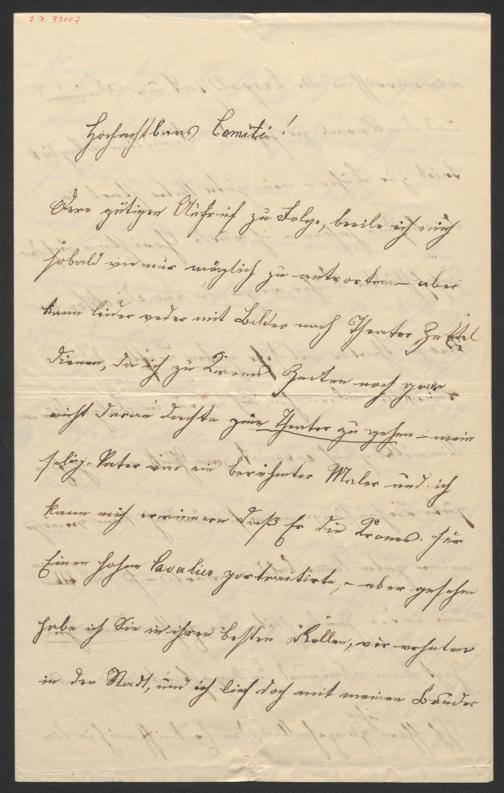 I. N. 73007
Hochachtbares Comitée!
Dero gütigen Aufruf zu Folge, beeile ich mich
sobald wie nur möglich zu antworten – aber
kann leider weder mit Bilder noch Theater Zettel
dienen, da ich zu Krones Zeiten noch gar
nicht daran dachte zum Theater zu gehen – mein
selig. Vater war ein berühmter Maler und ich
kann mich erinnern daß Er die Krones für
Einen hohen Cavalier portraitirte, – aber gesehen
habe ich Sie in ihren besten Rollen, wir wohnten
in der Stadt, und ich lief doch mit meinen Bruder